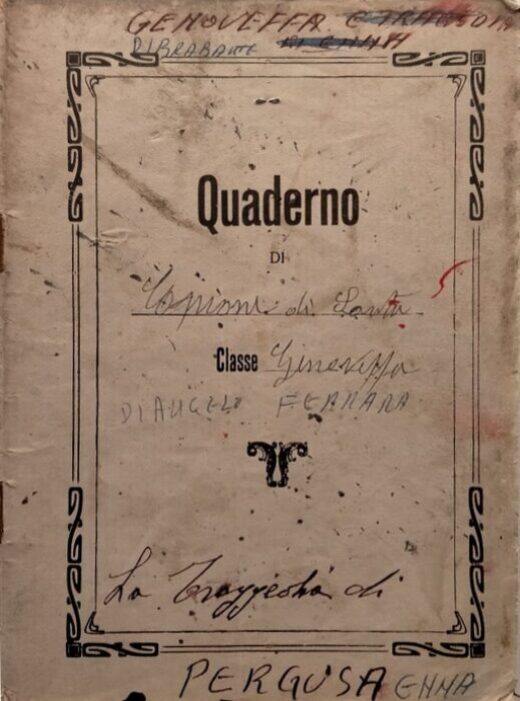 GENOVEFFA E TRAGEDIA
DI BRABANTE DI ENNA
Quaderno
DI
Copione di Santa
5
Classe Gineveffa
DI ANGELO FERRARA
La Traggeshia di
PERGUSA ENNA